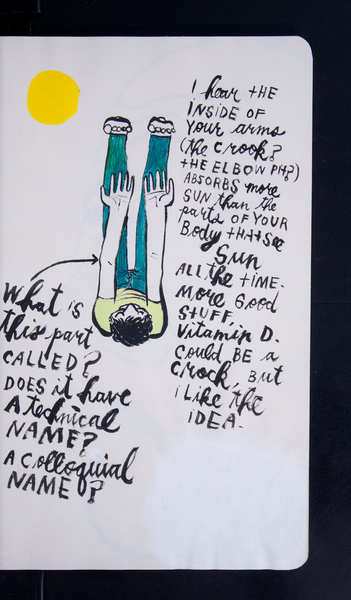 I hear tHE
INSIDE OF
your arms
(the crook?
tHE ELBOW Pit?)
ABSORBS more
SUN than the
parts OF YOUR
Body tHAt see
Sun
ALL the tIME.
MORE Good
StUFF,
Vitamin D.
COULD BE a
CROCK, BUt
i LIKE the
iDEA.
What is
this part
CALLED?
DOES it have
A technical
NAME?
A COLLOQUIAL
NAME?